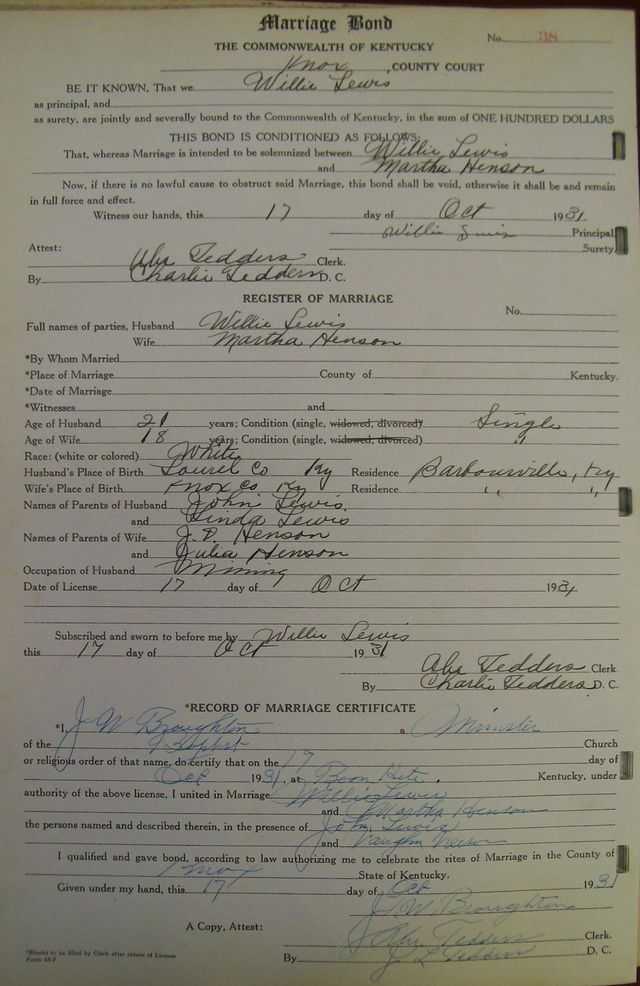 Marriage Bond
No. 38
THE COMMONWEALTH OF KENTUCKY
Knox COUNTY COURT
BE IT KNOWN, That we Willie Lewis
as principal, and
as surety, are jointly and severally bound to the Commonwealth of Kentucky, in the sum of ONE HUNDRED DOLLARS
THIS BOND IS CONDITIONED AS FOLLOWS:
That, whereas Marriage is intended to be solemnized between Willie Lewis
and Martha Henson
Now, if there is no lawful cause to obstruct said Marriage, this bond shall be void, otherwise it shall be and remain
in full force and effect.
Witness our hands, this 17 day of Oct 1931
Willie Lewis Principal
Surety
Attest:
Abe Tedders Clerk.
By Charlie Tedders D. C.
REGISTER OF MARRIAGE
No.
Full names of parties, Husband Willie Lewis
Wife Martha Henson
*By Whom Married
*Place of Marriage County of Kentucky.
*Date of Marriage
*Witnesses and
Age of Husband 21 years; Condition (single, widowed, divorced) Single
Age of Wife 18 years; Condition (single, widowed, divorced) "
Race: (white or colored) White
Husband's Place of Birth Laurel Co Ky Residence Barbourville, Ky
Wife's Place of Birth Knox Co Ky Residence " "
Names of Parents of Husband John Lewis
and Linda Lewis
Names of Parents of Wife J. D. Henson
and Julia Henson
Occupation of Husband Mining
Date of License 17 day of Oct 1931
Subscribed and sworn to before me by Willie Lewis
this 17 day of Oct 1931
Abe Tedders Clerk
By Charlie Tedders D. C.
*RECORD OF MARRIAGE CERTIFICATE
*I, J W Broughton a Minister
of the Baptist Church
or religious order of that name, do certify that on the 17 day of
Oct 1931, at Boon Hite, Kentucky, under
authority of the above license, I united in Marriage Willie Lewis
and Martha Henson
the persons named and described therein, in the presence of John Lewis
and Vaughn
I qualified and gave bond, according to law authorizing me to celebrate the rites of Marriage in the County of
Knox State of Kentucky.
Given under my hand, this 17 day of Oct 1931
J. W. Broughton
A Copy, Attest:
Abe Tedders Clerk.
By J L Tedders D. C.
*Blanks to be filled by Clerk after return of License